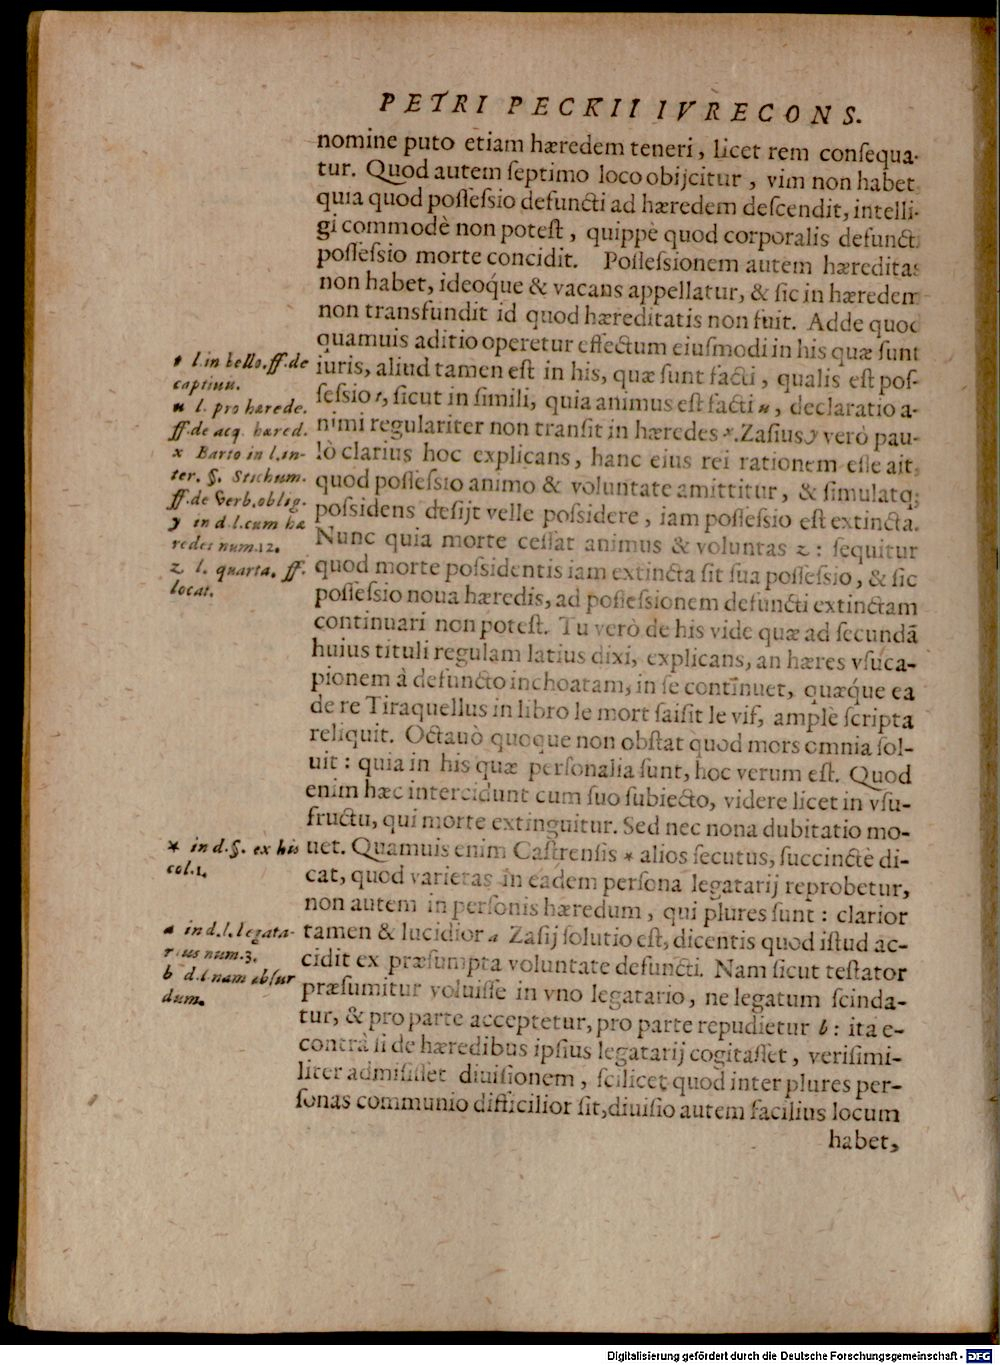 PETRI PECKII IVRECONS.
nomine puto etiam hæredem teneri, licet rem conſequa-
tur. Quod autem ſeptimo loco obijcitur, vim non habet
quia quod poſſeſsio defuncti ad hæredem deſcendit, intelli-
gi commodè non poteſt, quippè quod corporalis defunct
poſſeſsio morte concidit. Poſſeſsionem autem hæredita
non habet, ideoq́ue & vacans appellatur, & ſic in hæredem
non transfundit id quod hæreditatis non fuit. Adde quoc
quamuis aditio operetur effectum eiuſmodi in his quæ ſunt
iuris, aliud tamen eſt in his, quæ ſunt facti, qualis eſt poſ-
ſeſsio t, ſicut in ſimili, quia animus eſt facti u, declaratio a-
nimi regulariter non tranſit in hæredes x. Zaſius y verò pau-
lò clarius hoc explicans, hanc eius rei rationem eſſe ait,
quod poſſeſsio animo & voluntate amittitur, & ſimulatq;
poſsidens deſijt velle poſsidere, iam poſſeſsio eſt extincta.
Nunc quia morte ceſſat animus & voluntas z: ſequitur
quod morte poſsidentis iam extincta ſit ſua poſſeſsio, & ſic
poſſeſsio noua hæredis, ad poſſeſsionem defuncti extinctam
continuari non poteſt. Tu verò de his vide quæ ad ſecundã
huius tituli regulam latius dixi, explicans, an hæres vſuca-
pionem à defuncto inchoatam, in ſe continuet, quæq́ue ea
de re Tiraquellus in libro le mort ſaiſit le vif, amplè ſcripta
reliquit. Octauò quoque non obſtat quod mors omnia ſol-
uit: quia in his quæ perſonalia ſunt, hoc verum eſt. Quod
enim hæc intercidunt cum ſuo ſubiecto, videre licet in vſu-
fructu, qui morte extinguitur. Sed nec nona dubitatio mo-
uet. Quamuis enim Caſtrenſis * alios ſecutus, ſuccinctè di-
cat, quod varietas in eadem perſona legatarij reprobetur,
non autem in perſonis hæredum, qui plures ſunt: clarior
tamen & lucidior a Zaſij ſolutio eſt, dicentis quod iſtud ac-
cidit ex præſumpta voluntate defuncti. Nam ſicut teſtator
præſumitur voluiſſe in vno legatario, ne legatum ſcinda-
tur, & pro parte acceptetur, pro parte repudietur b: ita e-
contrà ſi de hæredibus ipſius legatarij cogitaſſet, veriſimi-
liter admiſiſſet diuiſionem, ſcilicet quod inter plures per-
ſonas communio difficilior ſit, diuiſio autem facilius locum
habet,
t l. in bello. ff. de
captiuu.
u l. pro hærede.
ff. de acq. hæred.
x Barto in l. in-
ter. §. Stichum.
ff. de verb. oblig.
y in d. l. cum hæ
redes num. 12.
z l. quarta. ff.
locat.
* in d. §. ex his
col. 1.
a in d. l. legata-
rius num. 3.
b d. l. nam abſur
dum.
Digitalisierung gefördert durch die Deutsche Forschungsgemeinschaft - DFG